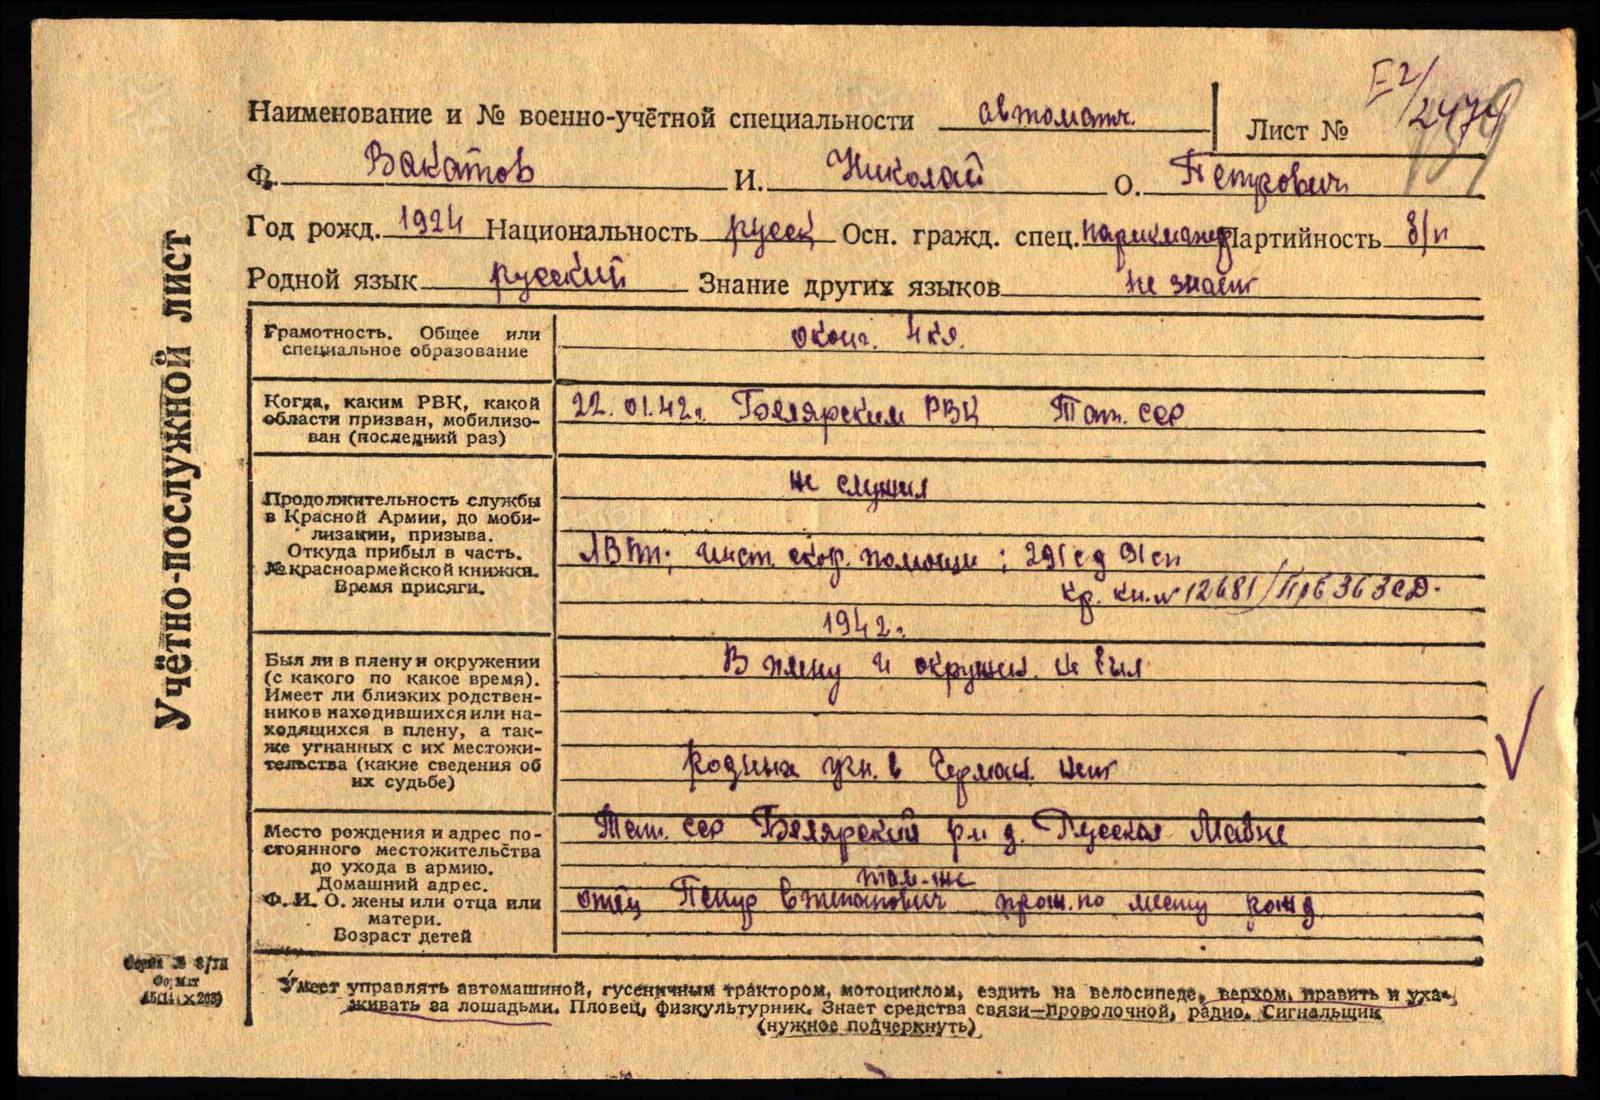 Учётно-послужной лист
Е2/2474
159
Наименование и № военно-учётной специальности автоматч. Лист №
Ф. Вакатов И. Николай О. Петрович
Год рожд. 1924 Национальность русск Осн. гражд. спец. парикмахер Партийность б/п
Родной язык русский Знание других языков не знает
Грамотность. Общее или
специальное образование
оконч. 4 кл.
Когда, каким РВК, какой
области призван, мобилизо-
ван (последний раз)
22.01.42 г. Билярским РВК Тат. ССР
Продолжительность службы
в Красной Армии, до моби-
лизации, призыва.
Откуда прибыл в часть.
№ красноармейской книжки.
Время присяги.
не служил
помощи; 291 сд 91 сп
кр. кн. № 12681/Прб 363 СД.
1942 г.
Был ли в плену и окружении
(с какого по какое время).
Имеет ли близких родствен-
ников находившихся или на-
ходящихся в плену, а так-
же угнанных с их местожи-
тельства (какие сведения об
их судьбе)
В плену и окружен. не был
родных угн. в Герман. нет
Место рождения и адрес по-
стоянного местожительства
до ухода в армию.
Домашний адрес.
Ф. И. О. жены или отца или
матери.
Возраст детей
Тат. ССР Билярский р-н д. Русская
там-же
отец Петр прож. по месту рожд
Серия № 8/III
Формат
Умеет управлять автомашиной, гусеничным трактором, мотоциклом, ездить на велосипеде, верхом, править и уха-
живать за лошадьми. Пловец, физкультурник. Знает средства связи—проволочной, радио. Сигнальщик
(нужное подчеркнуть)